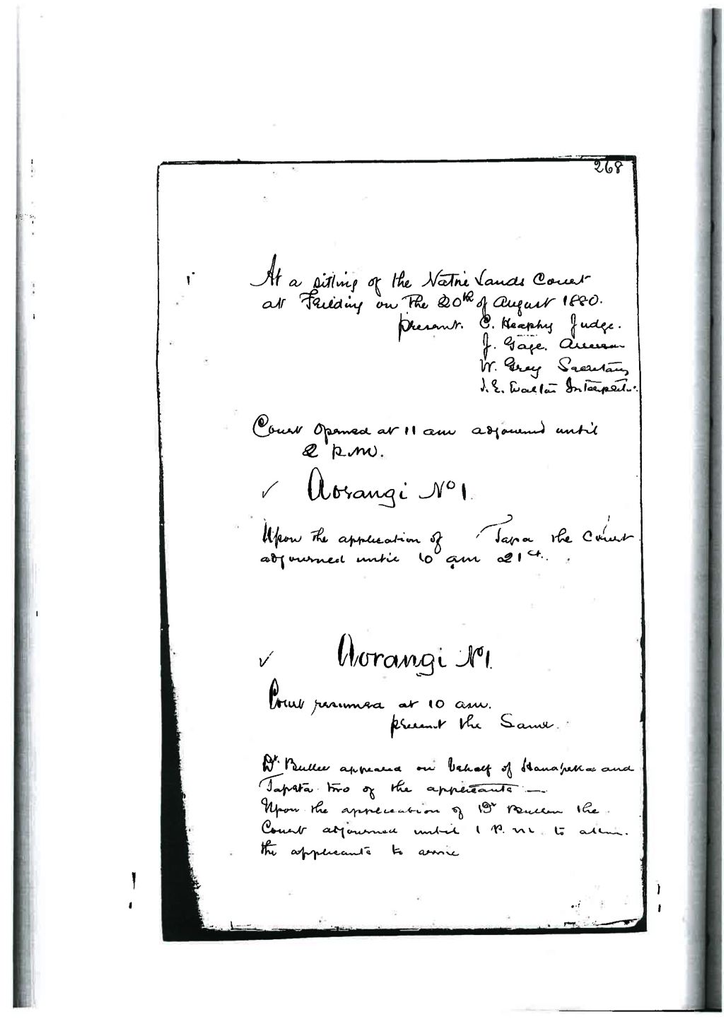 268
At a sitting of the Native Lands Court
at Feilding on the 20th of August 1880.
present. C. Heaphy Judge.
J. Gage. Assessor
W. Grey Secretary
J. E. Dalton Interpreter.
Court opened at 11 am adjourned until
2 P.M.
✓ Aorangi No 1.
Upon the application of Tapa the Court
adjourned until 10 am 21st.
✓ Aorangi No 1.
Court resumed at 10 am.
present the Same.
Dr. Buller appeared on behalf of and
Tapita two of the applicants —
Upon the application of Dr Buller the
Court adjourned until 1 P.M. to allow
the applicants to arrive